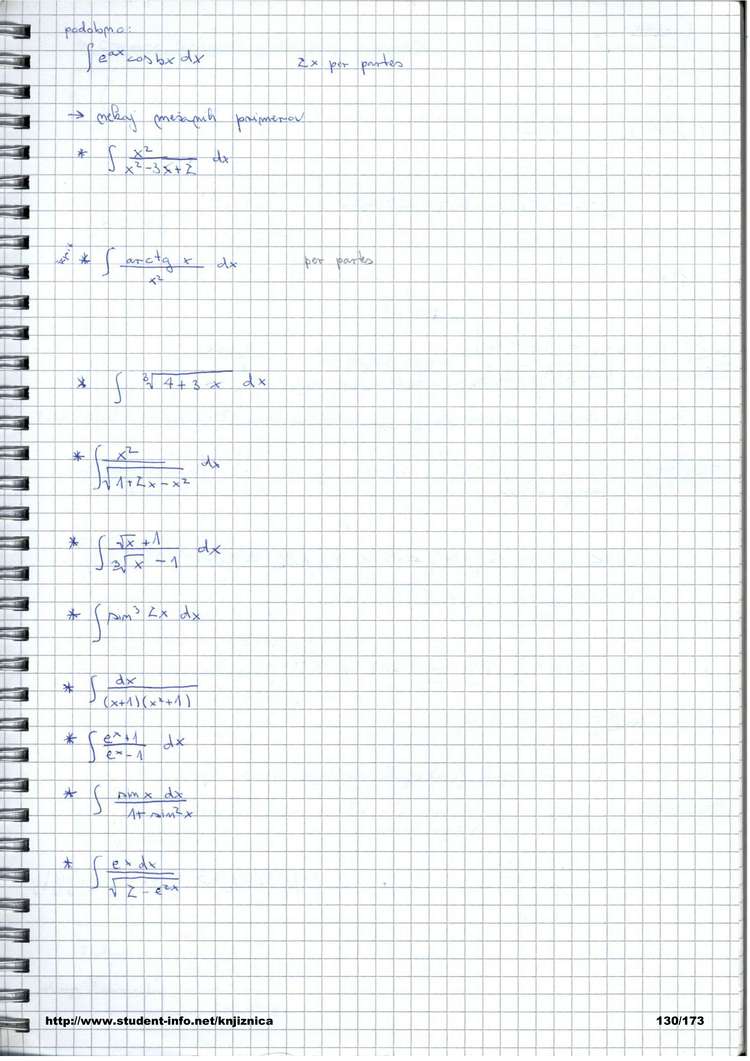 podobno:
∫ e^{ax} cos bx dx 2x per partes
→ nekaj mešanih primerov
* ∫ x² / (x² - 3x + 2) dx
* ∫ arctg x / x² dx per partes
* ∫ ∛(4 + 3x) dx
* ∫ x² / √(1 + 2x - x²) dx
* ∫ (√x + 1) / (∛x - 1) dx
* ∫ sin³ 2x dx
* ∫ dx / ((x+1)(x²+1))
* ∫ (eˣ + 1) / (eˣ - 1) dx
* ∫ sin x dx / (1 + sin² x)
* ∫ eˣ dx / √(2 - e^{2x})
http://www.student-info.net/knjiznica 130/173